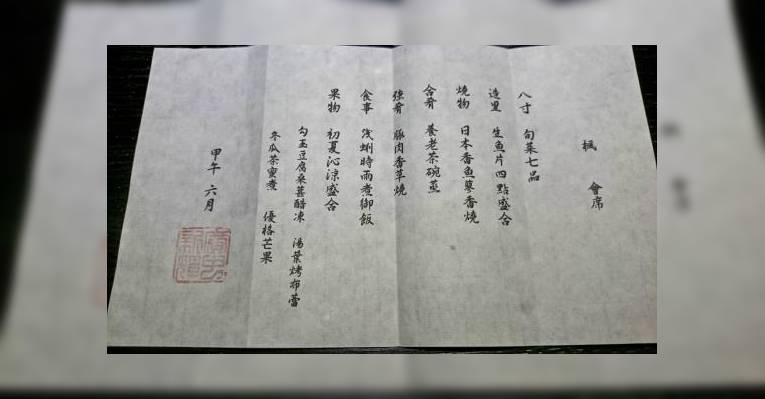 楓 會席
八寸 旬菜七品
造里 生魚片四點盛合
燒物 日本香魚蓼香燒
合肴 養老茶碗蒸
強肴 豚肉香草燒
食事 淺蜊時雨煮御飯
果物 初夏沁涼盛合
勾玉豆腐桑葚醋凍 湯葉烤布蕾
冬瓜茶蜜煮 優格芒果
甲午 六月